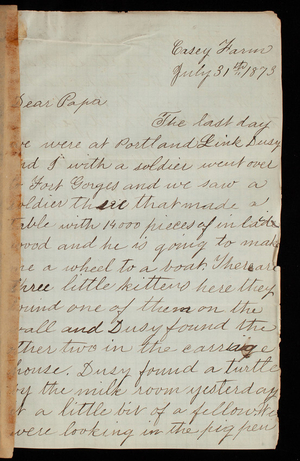 Casey Farm
July 31st 1873
Dear Papa
The last day
we were at Portland Link Dusy
and I with a soldier went over
Fort Gorges and we saw a
soldier there that made a
table with 14000 pieces of in laid
wood and he is going to make
me a wheel to a boat. There are
three little kittens here they
found one of them on the
wall and Dusy found the
other two in the carriage
house. Dusy found a turtle
by the milk room yesterday
a little bit of a fellow. We
were looking in the pig pen